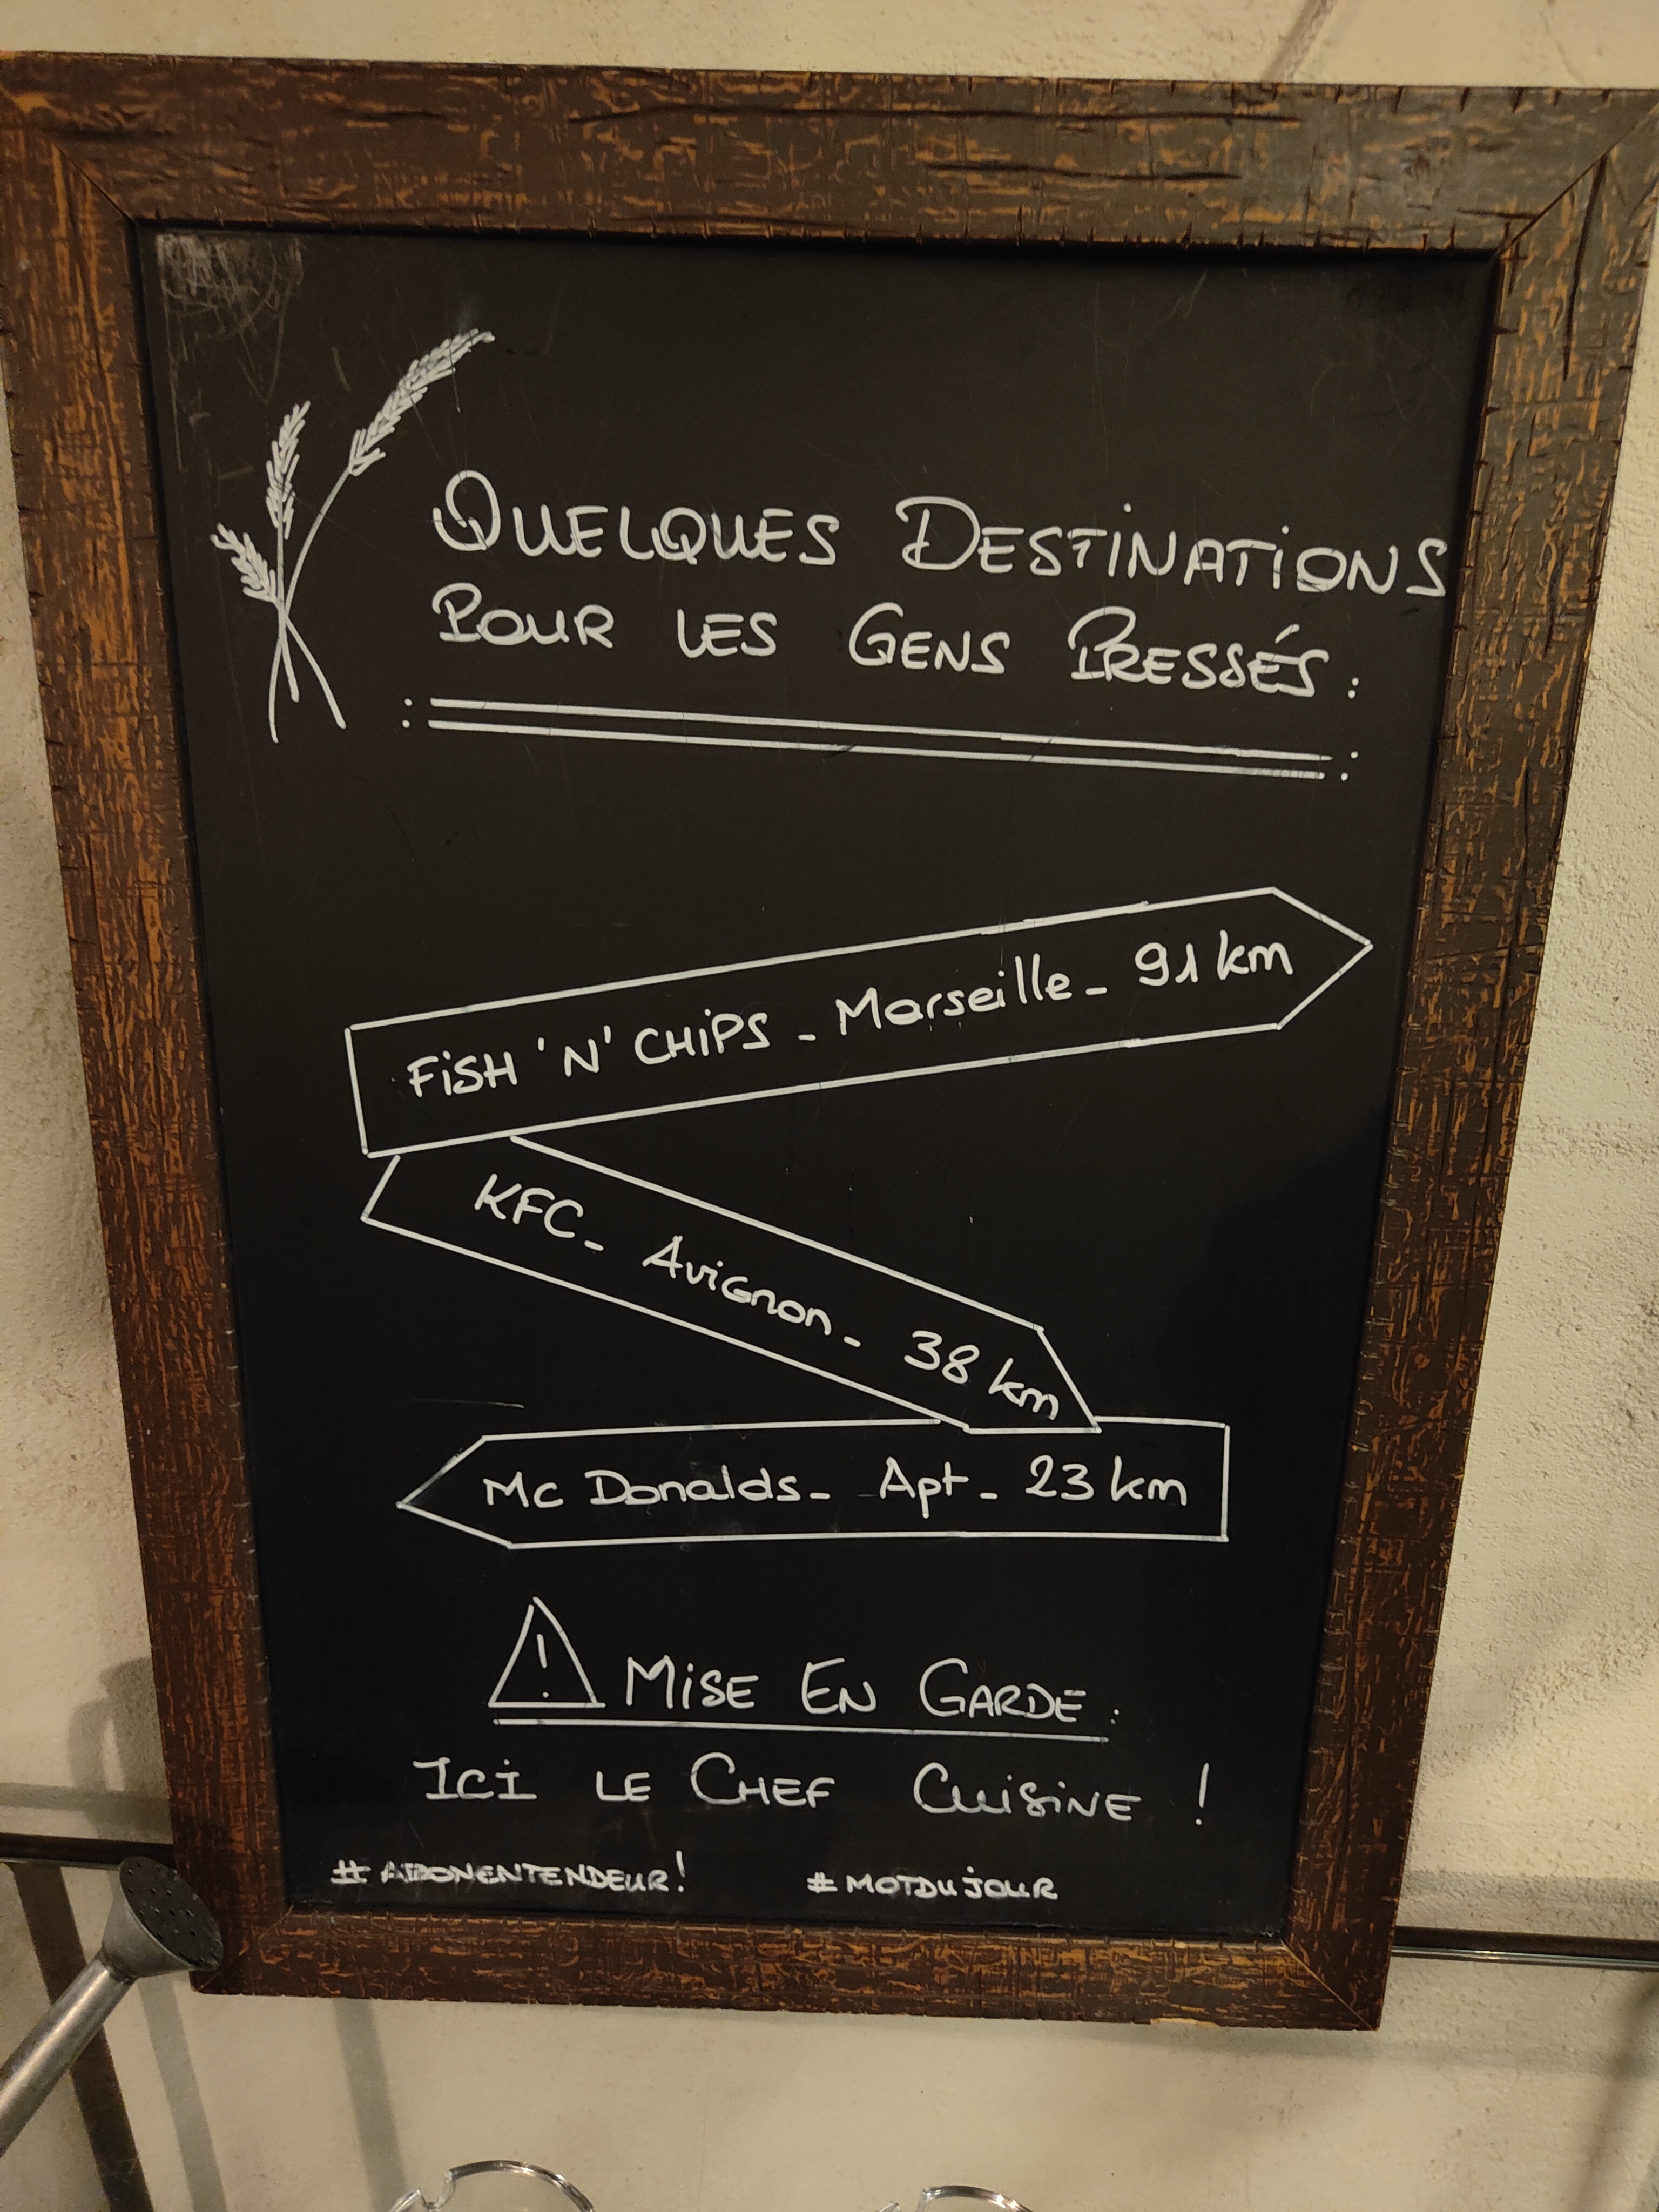 QUELQUES DESTINATIONS
POUR LES GENS PRESSÉS :
FISH 'N' CHIPS - Marseille - 91 km
KFC - Avignon - 38 km
Mc Donalds - Apt - 23 km
! MISE EN GARDE :
ICI LE CHEF CUISINE !
#ABONENTENDEUR! #MOTDUJOUR